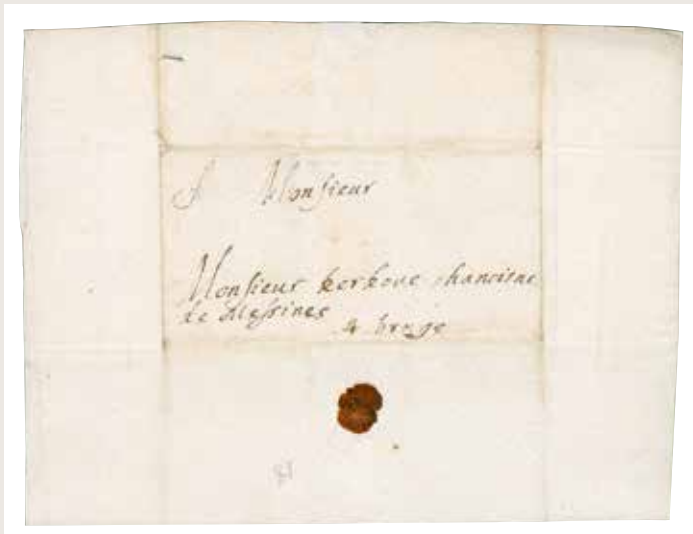 A Monsieur
Monsieur kerkoue chanoine
de Messines
a bruge